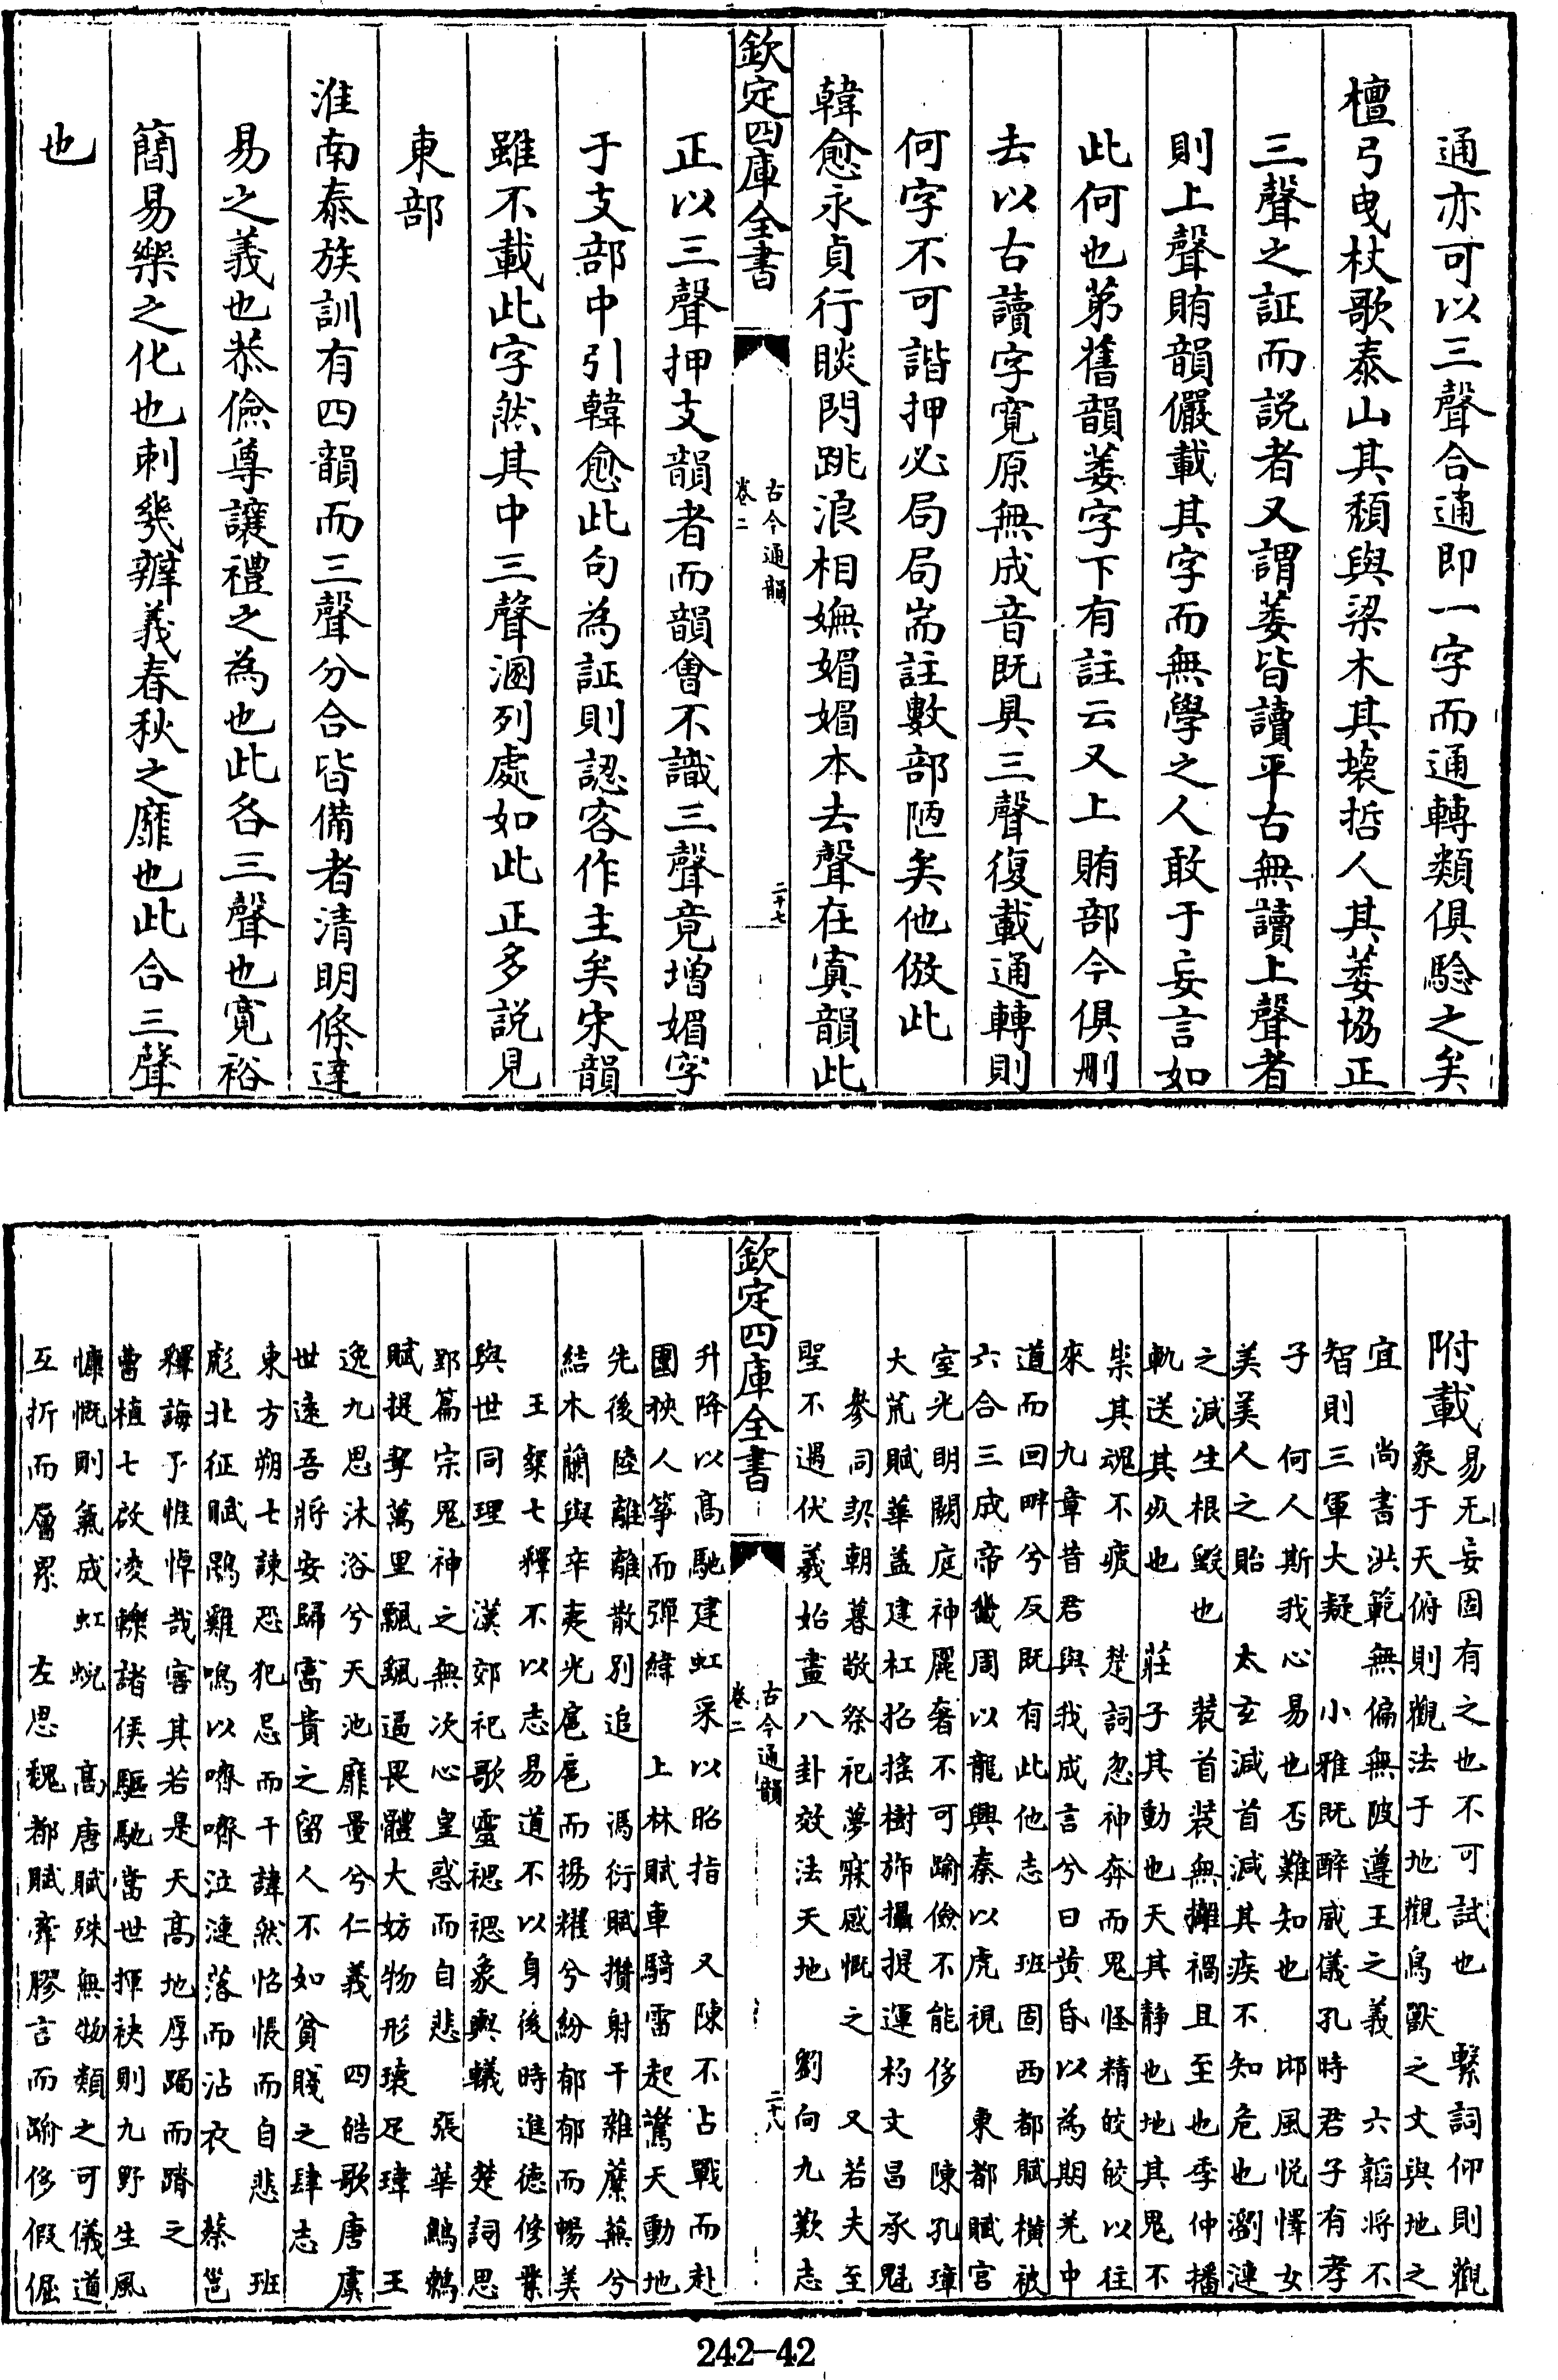 通亦可以三聲合通即一字而通轉類俱騐之矣
檀弓曳杖歌泰山其頽與梁木其壊哲人其萎協正
三聲之証而説者又謂萎皆讀平古無讀上聲者
則上聲賄韻儼載其字而無學之人敢于妄言如
此何也苐舊韻萎字下有註云又上賄部今俱刪
去以古讀字寛原無成音既具三聲復載通轉則
何字不可諧押必局局耑註數部陋矣他倣此
韓愈永貞行睒閃跳浪相嫵媚媚本去聲在寘韻此
欽定四庫全書
古今通韻
卷二
二十七
正以三聲押支韻者而韻㑹不識三聲竟增媚字
于支部中引韓愈此句為証則認客作主矣宋韻
雖不載此字然其中三聲溷列處如此正多説見
東部
淮南泰族訓有四韻而三聲分合皆備者清明條達
易之義也恭儉尊讓禮之為也此各三聲也寛裕
簡易樂之化也刺幾辯義春秋之靡也此合三聲
也
附載
易无妄固有之也不可試也 繫詞仰則觀
象于天俯則觀法于地觀鳥獸之文與地之
宜 尚書洪範無偏無陂遵王之義 六韜將不
智則三軍大疑 小雅既醉威儀孔時君子有孝
子 何人斯我心易也否難知也 邶風悦懌女
美美人之貽 太玄減首減其疾不知危也瀏漣
之減生根毀也 裝首装無攡禍且至也季仲播
軌送其㷋也 莊子其動也天其静也地其鬼不
祟其魂不疲 楚詞忽神奔而鬼怪精皎皎以往
來 九章昔君與我成言兮曰黄昏以為期羌中
道而回畔兮反既有此他志 班固西都賦橫被
六合三成帝畿周以龍興秦以虎視 東都賦宫
室光明闕庭神麗奢不可踰儉不能侈 陳孔璋
大荒賦華蓋建杠招搖樹旆攝提運杓文昌承魁
參同契朝暮敬祭祀夢寐感慨之 又若夫至
聖不過伏羲始畫八卦效法天地 劉向九歎志
欽定四庫全書
古今通韻
卷二
二十八
升降以高馳建虹采以昭指 又陳不占戰而赴
圍殃人箏而彈緯 上林賦車騎雷起驚天動地
先後陸離離散别追 馮衍賦攢射干雜蘼蕪兮
結木蘭與辛夷光扈扈而揚耀兮紛郁郁而暢美
王粲七釋不以志易道不以身後時進德修業
與世同理 漢郊祀歌靈禗禗象輿轙 楚詞思
郢篇宗鬼神之無次心皇惑而自悲 張華鷦鷯
賦提挈萬里飄颻逼畏體大妨物形瓌足瑋 王
逸九思沐浴兮天池靡量兮仁義 四皓歌唐虞
世逺吾將安歸富貴之留人不如貧賤之肆志
東方朔七諫恐犯忌而干諱然怊悵而自悲 班
彪北征賦鵾雞鳴以嚌嚌泣漣落而沾衣 蔡邕
釋誨予惟悼哉害其若是天高地厚跼而蹐之
曹植七啟凌轢諸侯驅馳當世揮袂則九野生風
慷慨則氣成虹蜺 高唐賦殊無物類之可儀道
互折而層累 左思魏都賦牽膠言而踰侈假倔
242-42